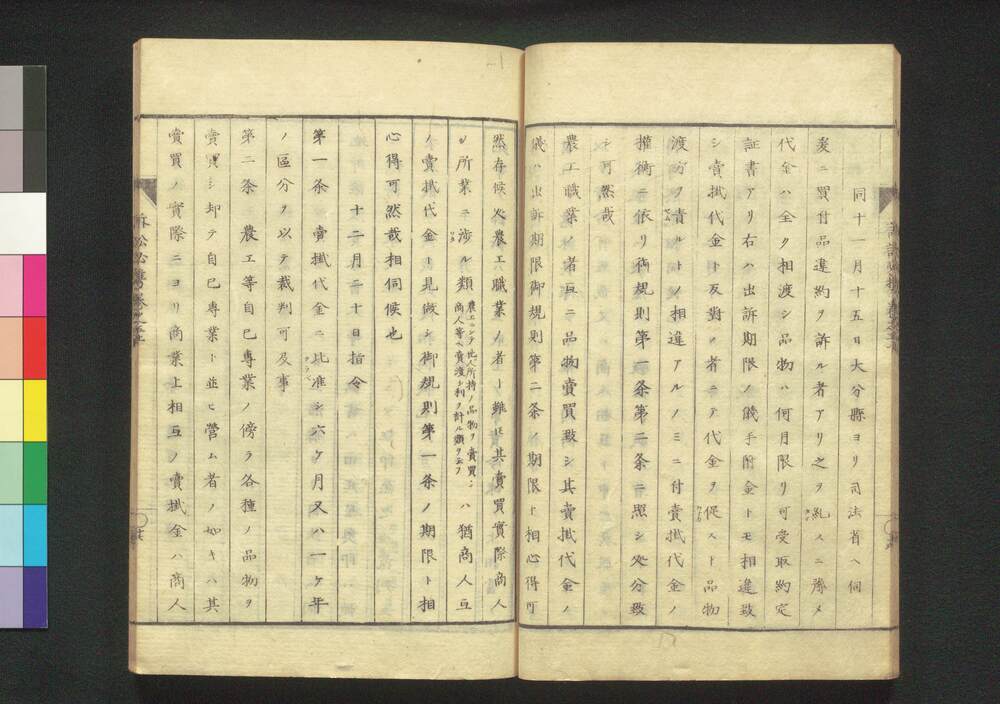 同十一月十五日大分縣ヨリ司法省ヘ伺
爰ニ買付品違約ヲ訴ル者アリ之ヲ糺スニ豫メ
代金ハ全ク相渡シ品物ハ何月限リ可受取約定
証書アリ右ハ出訴期限ノ儀手附金トモ相違致
シ賣掛代金ト反對ノ者ニテ代金ヲ促スト品物
渡方ヲ責ルトノ相違アルノミニ付賣掛代金ノ
權衡ニ依リ御規則第一条第二条ニ照シ処分致
シ可然哉
農工職業ノ者互ニ品物賣買致シ其賣掛代金ノ
儀ハ出訴期限御規則第二条ノ期限ト相心得可
然存候処農工職業ノ者ト雖モ其賣買實際商人
ノ所業ニ渉ル類農工ニシテ他人所持ノ品物ヲ賣買シ商人等ヘ賣渡シ利ヲ計ル類ヲ云フハ猶商人互
ノ賣掛代金ト見做シ御規則第一条ノ期限ト相
心得可然哉相伺候也
十二月二十日指令
第一条賣掛代金ニ比准シ六ケ月又ハ一ケ年
ノ區分ヲ以テ裁判可及事
第二条農工等自己專業ノ傍ラ各種ノ品物ヲ
賣買シ却テ自己專業ト並ヒ營ム者ノ如キハ其
賣買ノ實際ニヨリ商業上相互ノ賣掛金ハ商人
訴訟必携卷之五